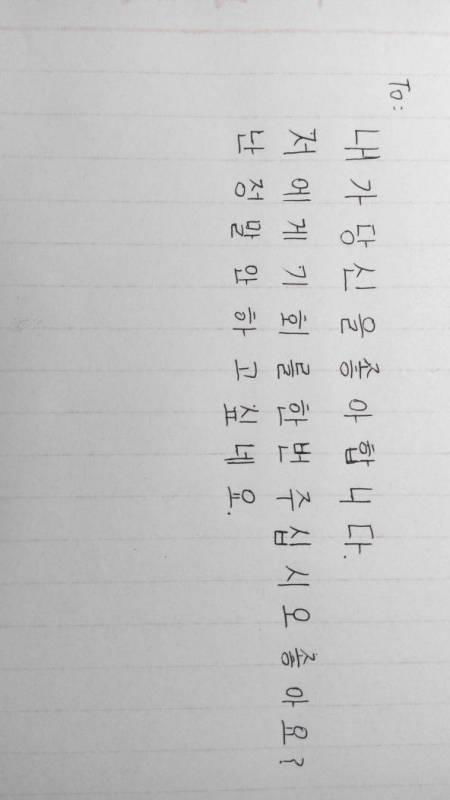 To:
내가당신을좋아합니다.
저에게기회를한번주십시오좋아요?
난정말안하고싶네요.